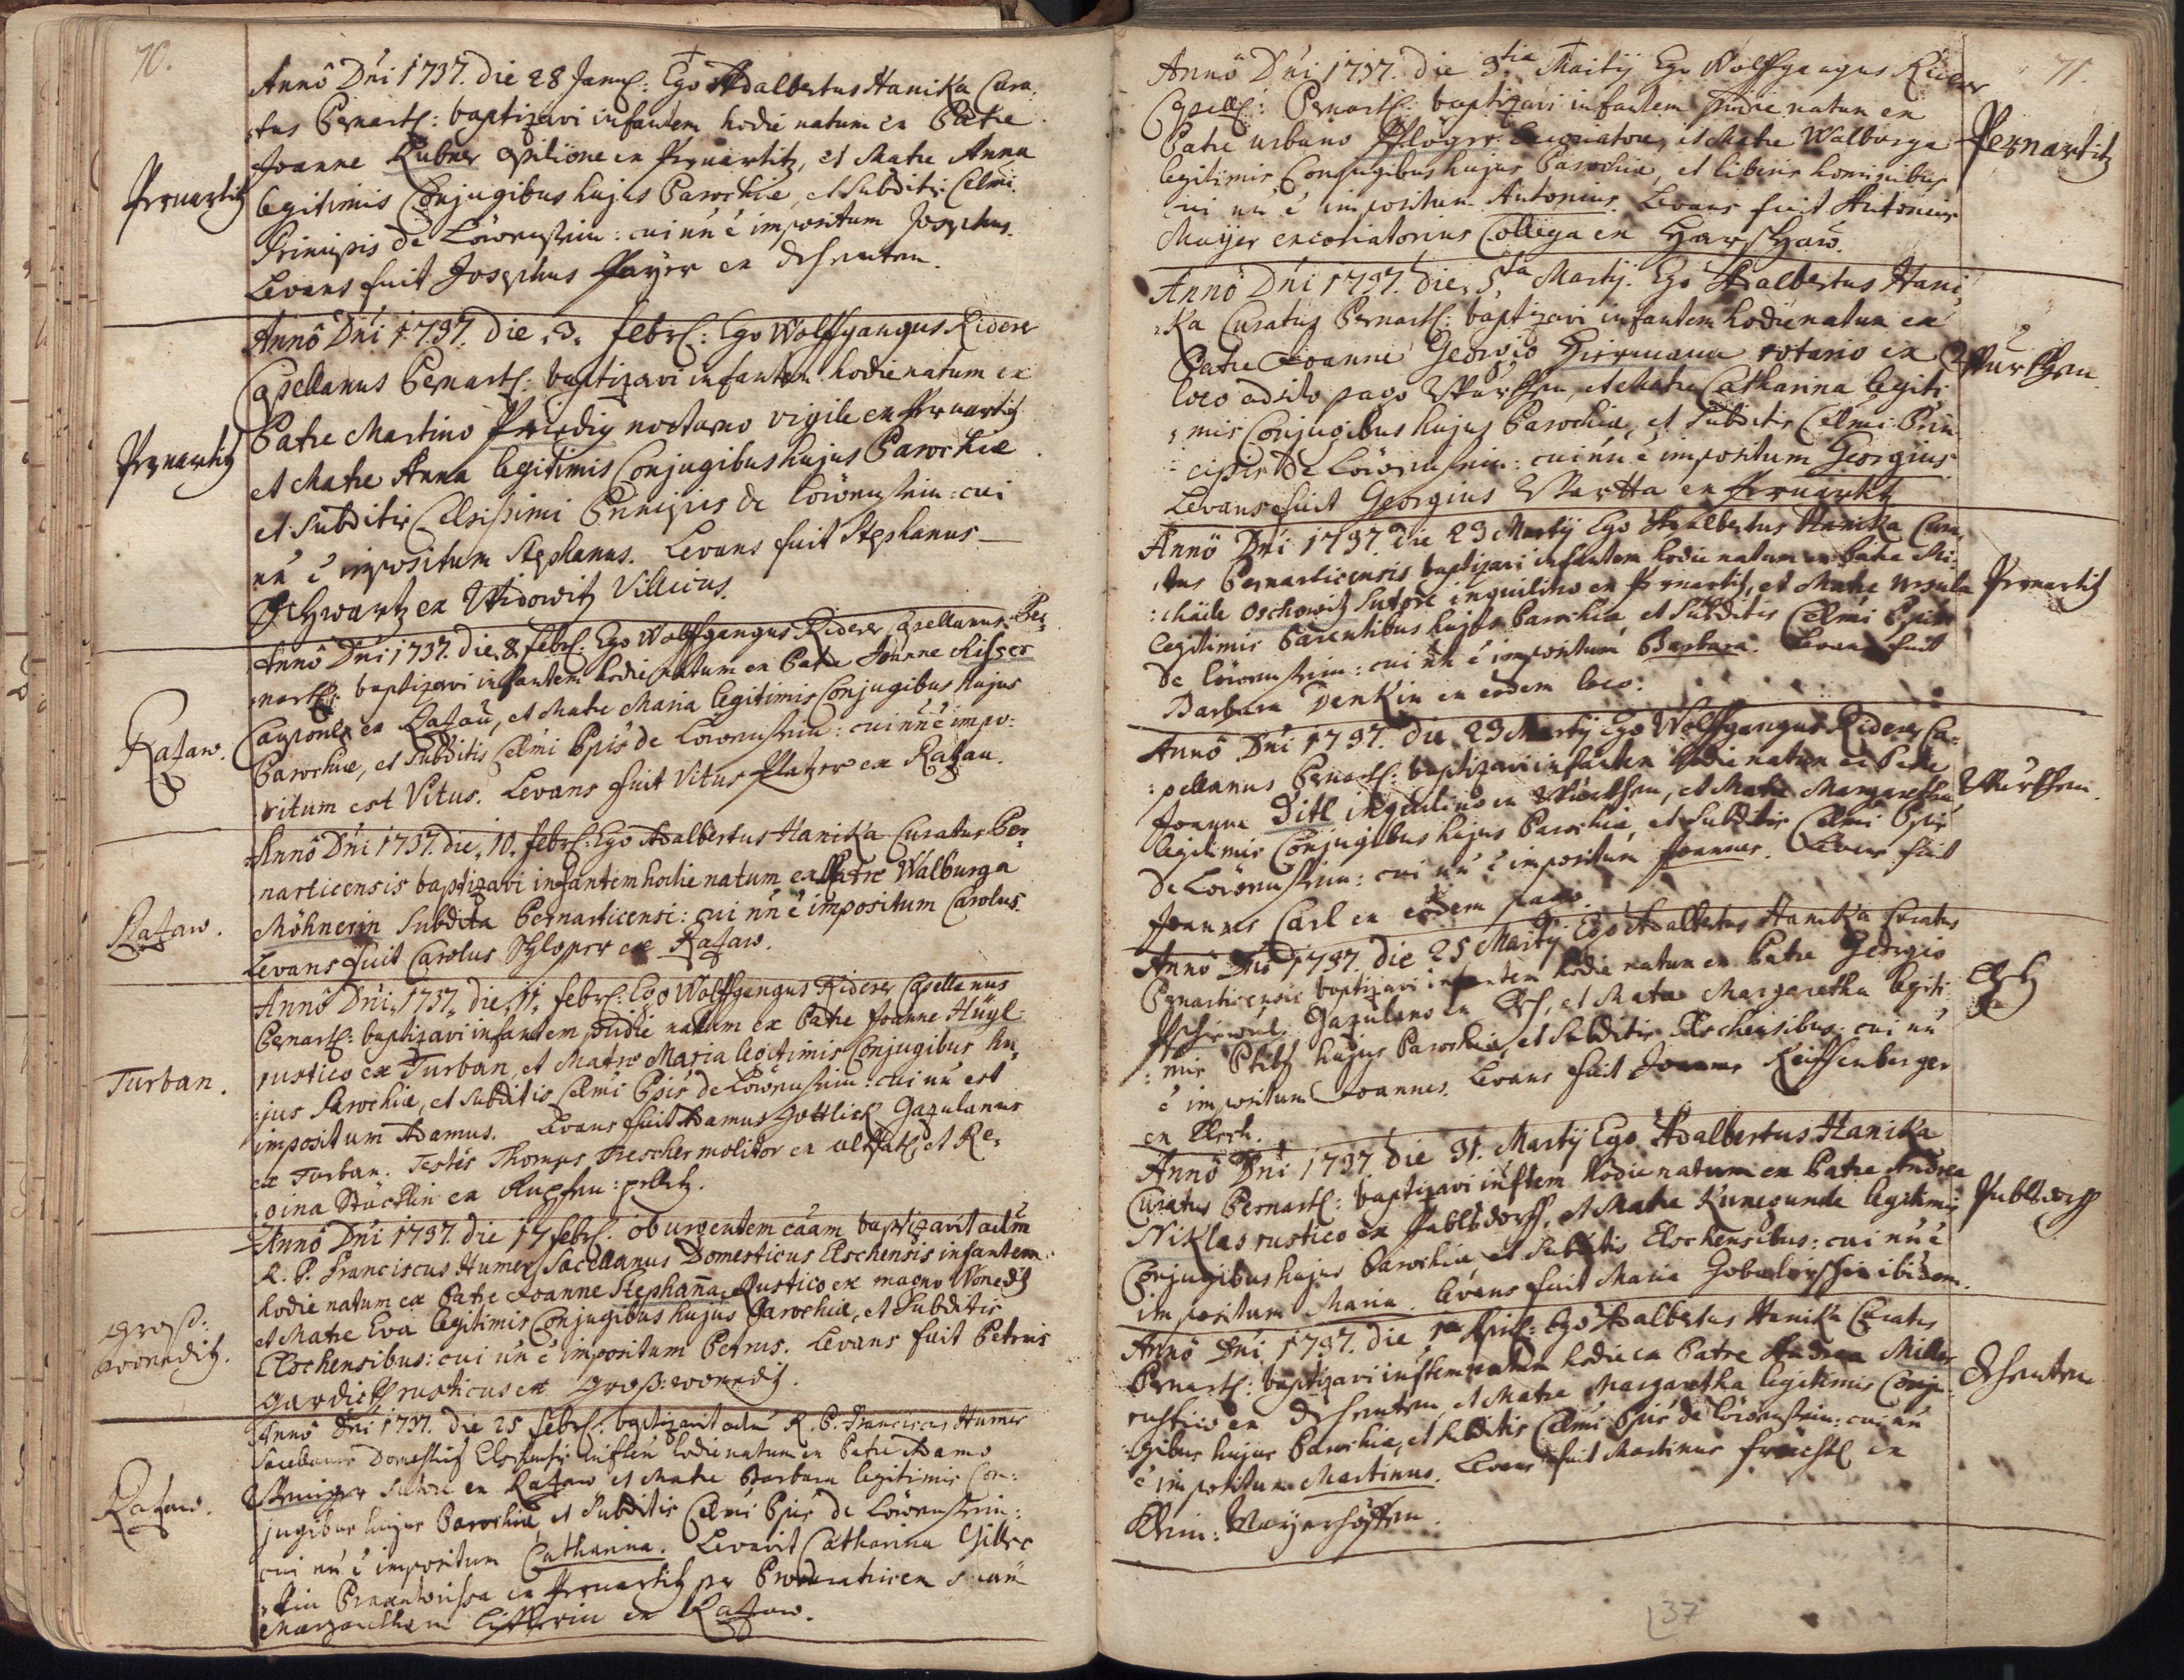 70.
Anno Dni 1737. die 28 Janu: Ego Adalbertus Hanika Cura¸
¸tus Pernart: baptizavi infantem hodie natum ex Patre
Joanne Rubner opilione ex Pernartitz, et Matre Anna
Pernartitz
legitimis Conjugibus hujus Parochiæ, et Subditis Celmi
Principis de Löwenstein: cui nn e impositum Josephus.
Levans fuit Josephus Payer ex
Anno Dni 1737. die 3. febr: Ego Wolffgangus Riderer
Capellanus Pernart: baptizavi infantem hodie natum ex
Patre Martino Priedig nocturno vigile ex Pernartitz
Pernartitz
et Matre Anna legitimis Conjugibus hujus Parochiæ
et Subditis Celsissimi Principis de Löwenstein: cui
nn e impositum Stephanus. Levans fuit Stephanus
Schwartz ex Widowitz Villicus.
Anno Dni 1737. die 8. febr: Ego Wolffgangus Riderer Capellanus Per¸
nart: baptizavi infantem hodie natum ex Patre Joanne
Caupone ex Razau, et Matre Maria legitimis Conjugibus hujus
Razaw.
Parochiæ, et Subditis Celmi Ppis de Löwenstein: cui nn e impo:
situm est Vitus. Levans fuit Vitus Platzer ex Razau.
Anno Dni 1737. die 10. febr: Ego Adalbertus Hanika Curatus Per¸
narticensis baptizavi infantem hodie natum ex Matre Walburga
Möhnerin Subdita Pernarticensi: cui nn e impositum Carolus.
Razaw.
Levans fuit Carolus ex Razaw.
Anno Dni 1737. die 11. febr: Ego Wolffgangus Riderer Capellanus
Pernart: baptizavi infantem pridie natum ex Patre Joanne Hügl
rustico ex Turban, et Matre Maria legitimis Conjugibus hu¸
Turban.
jus Parochiæ, et Subditis Celmi Ppis de Löwenstein: cui nn est
impositum Adamus. Levans fuit Adamus Gottlick Gazulanus
ex Turban. Testis Thomas Trescher molitor ex et Re¸
gina Stöcklin ex
Anno Dni 1737. die 17 febr: ob urgentem cäam baptizavit adm
R. P. Franciscus Humer Sacellanus Domesticus Elschensis infantem
hodie natum ex Patre Joanne Stephanna Rustico ex magno Wonedz
et Matre Eva legitimis Conjugibus hujus Parochiæ, et Subditis
Groß:
wonnditz.
Elschensibus: cui nn e impositum Petrus. Levans fuit Petrus
rusticus ex Groß: wonnditz.
Anno Dni 1737. die 25 febr: baptizavit adm R. P. Franciscus Humer
Sacellanus Domestic Elschensis hodie natum ex Patre Adamo
Sutore ex Razaw et Matre Barbara legitimis Con:
Razaw.
jugibus hujus Parochiæ et Subditis Celmi Ppis de Löwenstein:
cui nn e impositum Catharina. Levavit Catharina
ex Pernartitz per Procuratricem suam
Margaretham ex Razaw.
71.
Anno Dni 1737. die 3tia Martij Ego Wolffgangus Riderer
Capell: Pernart: baptizavi infantem pridie natum ex
Patre urbano Pflöger Excoriatore, et Matre Walburga
Pernartitz
legitimis Conjugibus hujus Parochiæ, et liberis hominibus
cui nn e impositum Antonius. Levans fuit Antonius
Mayer excoriatorius Collega ex
Anno Dni 1737. die 5ta Martij. Ego Adalbertus Hani¸
¸ka Curatus Pernart: baptizavi infantem hodie natum ex
Patre Joanne Georgio Hirmann rotario ex
loco adsito pago et Matre Catharina legiti
¸mis Conjugibus hujus Parochiæ, et Subditis Celmi Prin
cipis de Löwenstein: cui nn e impositum Georgius.
Levans fuit Georgius ex Pernartitz
Anno Dni 1737. die 23 Martij Ego Adalbertus Hanika Cura¸
¸tus Pernarticensis baptizavi infantem hodie natum ex Patre Mi:
:chaele Oschowitz Sutore inquilino ex Pernartitz, et Matre Ursula
Pernartitz
legitimis Parentibus hujus Parochiæ et Subditis Celmi Ppis
de Löwenstein: cui nn e impositum Barbara. Levans fuit
Barbara Denkin ex eodem loco.
Anno Dni 1737. die 23 Martij Ego Wolffgangus Riderer Ca:
:pellanus Pernart: baptizavi infantem hodie natum ex Patre
Joanne Ditl inquilino ex et Matre Margaretha
legitimis Conjugibus hujus Parochiæ, et Subditis Celmi Ppis
de Löwenstein: cui nn e impositum Joannes. Levans fuit
Joannes Carl ex eodem pago.
Anno Dni 1737. die 25 Martij Ego Adalbertus Hanika Curatus
Pernarticensis baptizavi infantem hodie natum ex Patre Georgio
Gazulano ex et Matre Margaretha legiti:
:mis hujus Parochiæ, et Subditis Elschensibus: cui nn
e impositum Joannes. Levans fuit Joannes Reiffenberger
ex Elsch.
Anno Dni 1737. die 31. Martij Ego Adalbertus Hanika
Curatus Pernart: baptizavi hodie natum ex Patre Andrea
Niklas rustico ex et Matre Kunegunda legitimis
Conjugibus hujus Parochiæ, et Subditis Elschensibus: cui nn e
impositum Maria. Levans fuit Maria ibidem.
Anno Dni 1737. die 1ma April: Ego Adalbertus Hanika Curatus
Pernart: baptizavi hodie ex Patre Andrea Miller
rustico ex et Matre Margaretha legitimis Conju¸
:gibus hujus Parochiæ, et Subditis Celmi Ppis de Löwenstein: cui nn
e impositum Martinus. Levans fuit Martinus ex
Klein: Mayerhöffen.
37